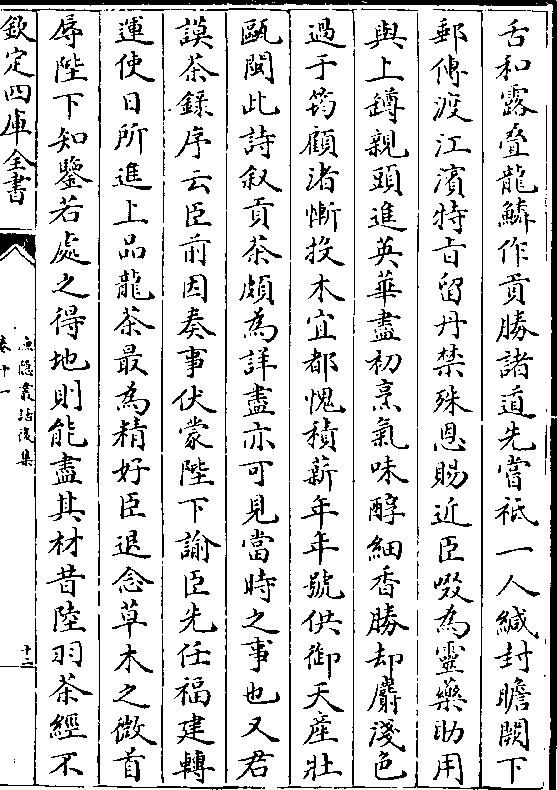 舌和露疊龍鱗作貢勝諸道先嘗祗一人緘封瞻闕下
郵傳渡江濱特㫖留丹禁殊恩賜近臣啜為靈藥助用
與上罇親頭進英華盡初烹氣味醇細香勝却麝淺色
過于筠顧渚慚投木宜都愧積薪年年號供御天産壯
甌閩此詩叙貢茶頗為詳盡亦可見當時之事也又君
謨茶錄序云臣前因奏事伏蒙陛下諭臣先任福建轉
運使日所進上品龍茶最為精好臣退念草木之微首
辱陛下知鑒若處之得地則能盡其材昔陸羽茶經不
欽定四庫全書
漁隱叢話後集
卷十一
十二